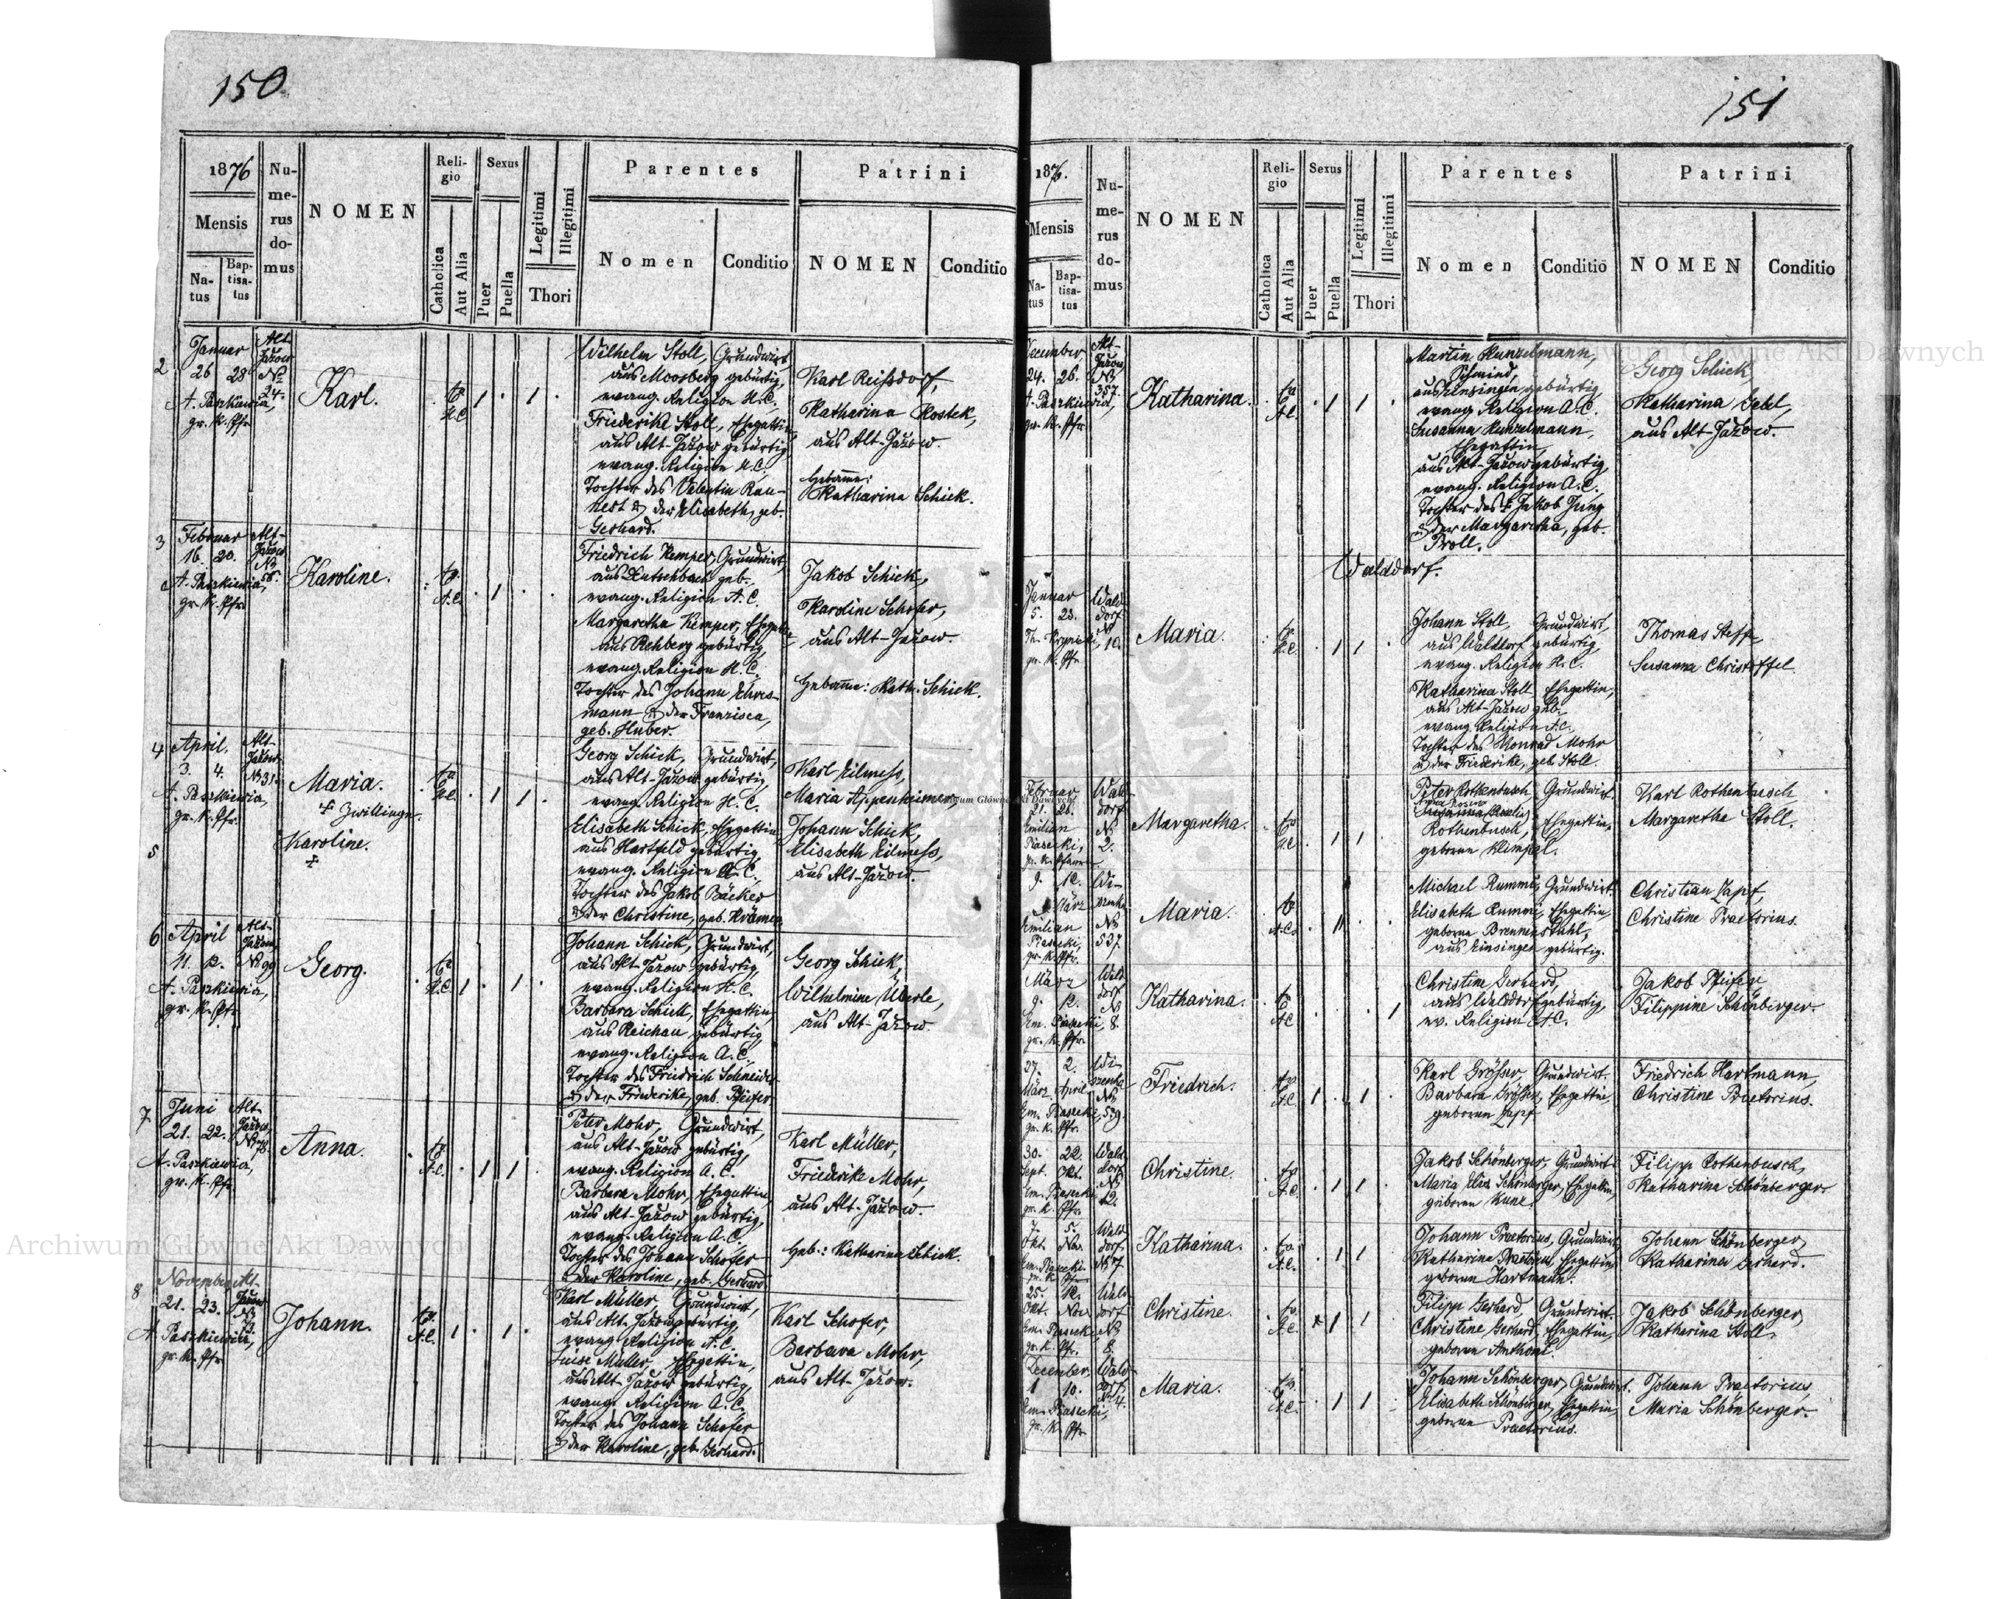 150
1876
Mensis
Na-
tus
Bap-
tisa-
tus
Nu-
me-
rus
do-
mus
NOMEN
Reli-
gio
Catholica
Aut Alia
Sexus
Puer
Puella
Legitimi
Illegitimi
Thori
Parentes
Nomen
Conditio
Patrini
NOMEN
Conditio
2
Januar
26 28
Alt
Jazow
No
24.
A. Paszkiewia,
gr. k. Pfr.
Karl.
H.C.
Wilhelm Stoll, Grundwirt,
aus Moosberg gebürtig,
evang. Religion H.C.
Friederike Stoll, Ehegattin,
aus Alt-Jazow gebürtig
evang. Religion H.C.
Tochter des Valentin
der Elisabeth, geb.
Gerhard.
Karl Reissdorf,
Katharina Kostek,
aus Alt-Jazow.
Hebamme:
Katharina Schick.
3
Februar
16. 20.
Alt-
Jazow
A. Paszkiewia,
gr. k. Pfr.
Karoline.
A.C.
Friedrich Kemper, Grundwirt,
aus Deutschbach geb.,
evang. Religion A.C.
Margaretha Kemper,
aus Rehberg gebürtig,
evang. Religion H.C.
Tochter des Johann Ehres-
mann & der Franzisca,
geb. Huber.
Jakob Schick,
Karoline Schofer,
aus Alt-Jazow
Hebamme: Kath. Schick.
4
April.
3. 4.
Alt-
Jazow
No 31
A. Paszkiewia,
gr. k. Pfr.
Maria.
Zwillinge
5
Karoline.
H.C.
Georg Schick, Grundwirt,
aus Alt-Jazow gebürtig,
evang. Religion H.C.
Elisabeth Schick, Ehegattin,
aus Hartfeld gebürtig,
evang. Religion A.C.
Tochter des Jakob Bäcker
& der Christine, geb. Krämer.
Karl Eilmess,
Maria Appenheimer
Johann Schick,
Elisabeth Eilmess,
aus Alt-Jazow.
6
April
11. 12.
Alt-
Jazow
No 99
A. Paszkiewia,
gr. k. Pfr.
Georg.
H.C.
Johann Schick, Grundwirt,
aus Alt-Jazow gebürtig,
evang. Religion H.C.
Barbara Schick, Ehegattin,
aus Reichau gebürtig,
evang. Religion A.C.
Tochter des Friedrich Schneider
& der Friederike, geb. Pfeifer
Georg Schick,
Wilhelmine Überle,
aus Alt-Jazow
7
Juni
21. 22.
Alt-
Jazow
No 78.
A. Paszkiewia,
gr. k. Pfr.
Anna.
A.C.
Peter Mohr, Grundwirt,
aus Alt-Jazow gebürtig,
evang. Religion A.C.
Barbara Mohr, Ehegattin
aus Alt-Jazow gebürtig,
evang. Religion A.C.
Tochter des Johann Schofer
& der Karoline, geb. Gerhard
Karl Müller,
Friederike Mohr,
aus Alt-Jazow.
Heb.: Katharina Schick.
8
November
21. 23.
Alt-
Jazow
A. Paszkiewia,
gr. k. Pfr.
Johann.
A.C.
Karl Müller, Grundwirt,
aus Alt-Jazow gebürtig,
evang. Religion A.C.
Luise Müller, Ehegattin,
aus Alt-Jazow gebürtig,
evang. Religion A.C.
Tochter des Johann Schofer
& der Karoline, geb. Gerhard.
Karl Schofer,
Barbara Mohr,
aus Alt-Jazow.
151
1876.
Mensis
Na-
tus
Bap-
tisa-
tus
Nu-
me-
rus
do-
mus
NOMEN
Reli-
gio
Catholica
Aut Alia
Sexus
Puer
Puella
Legitimi
Illegitimi
Thori
Parentes
Nomen
Conditio
Patrini
NOMEN
Conditio
December
24. 26.
Alt-
Jazow
No
357.
A. Paszkiewia,
gr. k. Pfr
Katharina.
A.C.
Martin Kunzelmann,
Schmied,
aus Einsingen gebürtig
evang. Religion A.C.
Susanna Kunzelmann,
Ehegattin,
aus Alt-Jazow gebürtig,
evang. Religion A.C.
Tochter des Jakob Jung
& der Margaretha, geb.
Proll.
Georg Schick,
Katharina
aus Alt-Jazow.
Walddorf.
Januar
5. 23.
Wald-
dorf
No
10.
gr. k. Pfr.
Maria.
H.C.
Johann Stoll, Grundwirt,
aus Walddorf gebürtig,
evang. Religion H.C.
Katharina Stoll, Ehegattin,
aus Alt-Jazow geb.
evang. Religion A.C.
Tochter des Konrad Mohr
& der Friederike, geb. Stoll.
Thomas Steff
Susanna Christoffel
Februar
21. 26.
Wald-
dorf
No
2.
Emilian
Piasecki,
gr. k. Pfarrer
Margaretha.
H.C.
Peter Rothenbusch Grundwirt.
Rothenbusch, Ehegattin,
geborene Klimpel.
Karl Rothenbusch
Margaretha Stoll.
9. 12.
März
No
537.
Emilian
Piasecki,
gr. k. Pfr.
Maria.
A.C.
Michael Rummel, Grundwirt
Elisabeth Rummel, Ehegattin,
geborene Brennenstuhl,
aus Einsingen gebürtig.
Christian Zapf,
Christine Praetorius.
März
9. 12.
Wald-
dorf
No
8.
Em. Piasecki,
gr. k. Pfr.
Katharina.
A.C.
Christine Gerhard,
aus Walddorf gebürtig,
ev. Religion A.C.
Jakob Pfeifer
Filippine Schönberger.
27. 2.
März April
No
539.
Em. Piasecki,
gr. k. Pfr.
Friedrich.
A.C.
Karl Grösser, Grundwirt
Barbara Grösser, Ehegattin,
geborene Zapf
Friedrich Hartmann,
Christine Praetorius.
30. 22.
Sept. Okt.
Wald
dorf
No
12.
Em. Piasecki
gr. k. Pfr.
Christine
A.C.
Jakob Schönberger, Grundwirt
Maria Elis. Schönberger, Ehegattin,
geborene Kunz.
Filipp Rothenbusch,
Katharina Schönberger.
7. 5.
Okt. Nov.
Wald
dorf
No 7
Em. Piasecki
gr. k. Pfr
Katharina.
A.C.
Johann Praetorius, Grundwirt
Katharina Praetorius, Ehegattin,
geborene Hartmann.
Johann Schönberger,
Katharina Gerhard.
25. 12.
Okt. Nov
Wald
dorf
No
8.
Em. Piasecki
gr. k. Pfr.
Christine.
A.C.
Filipp Gerhard, Grundwirt.
Christine Gerhard, Ehegattin,
geborene Anthoni.
Jakob Schönberger,
Katharina Stoll.
December
1 10.
Wald
dorf
No 4.
Em. Piasecki,
gr. k. Pfr
Maria.
A.C.
Johann Schönberger, Grundwirt.
Elisabeth Schönberger, Ehegattin,
geborene Praetorius.
Johann Praetorius,
Maria Schönberger.
Archiwum Główne Akt Dawnych
Archiwum Główne Akt Dawnych
Archiwum Główne Akt Dawnych